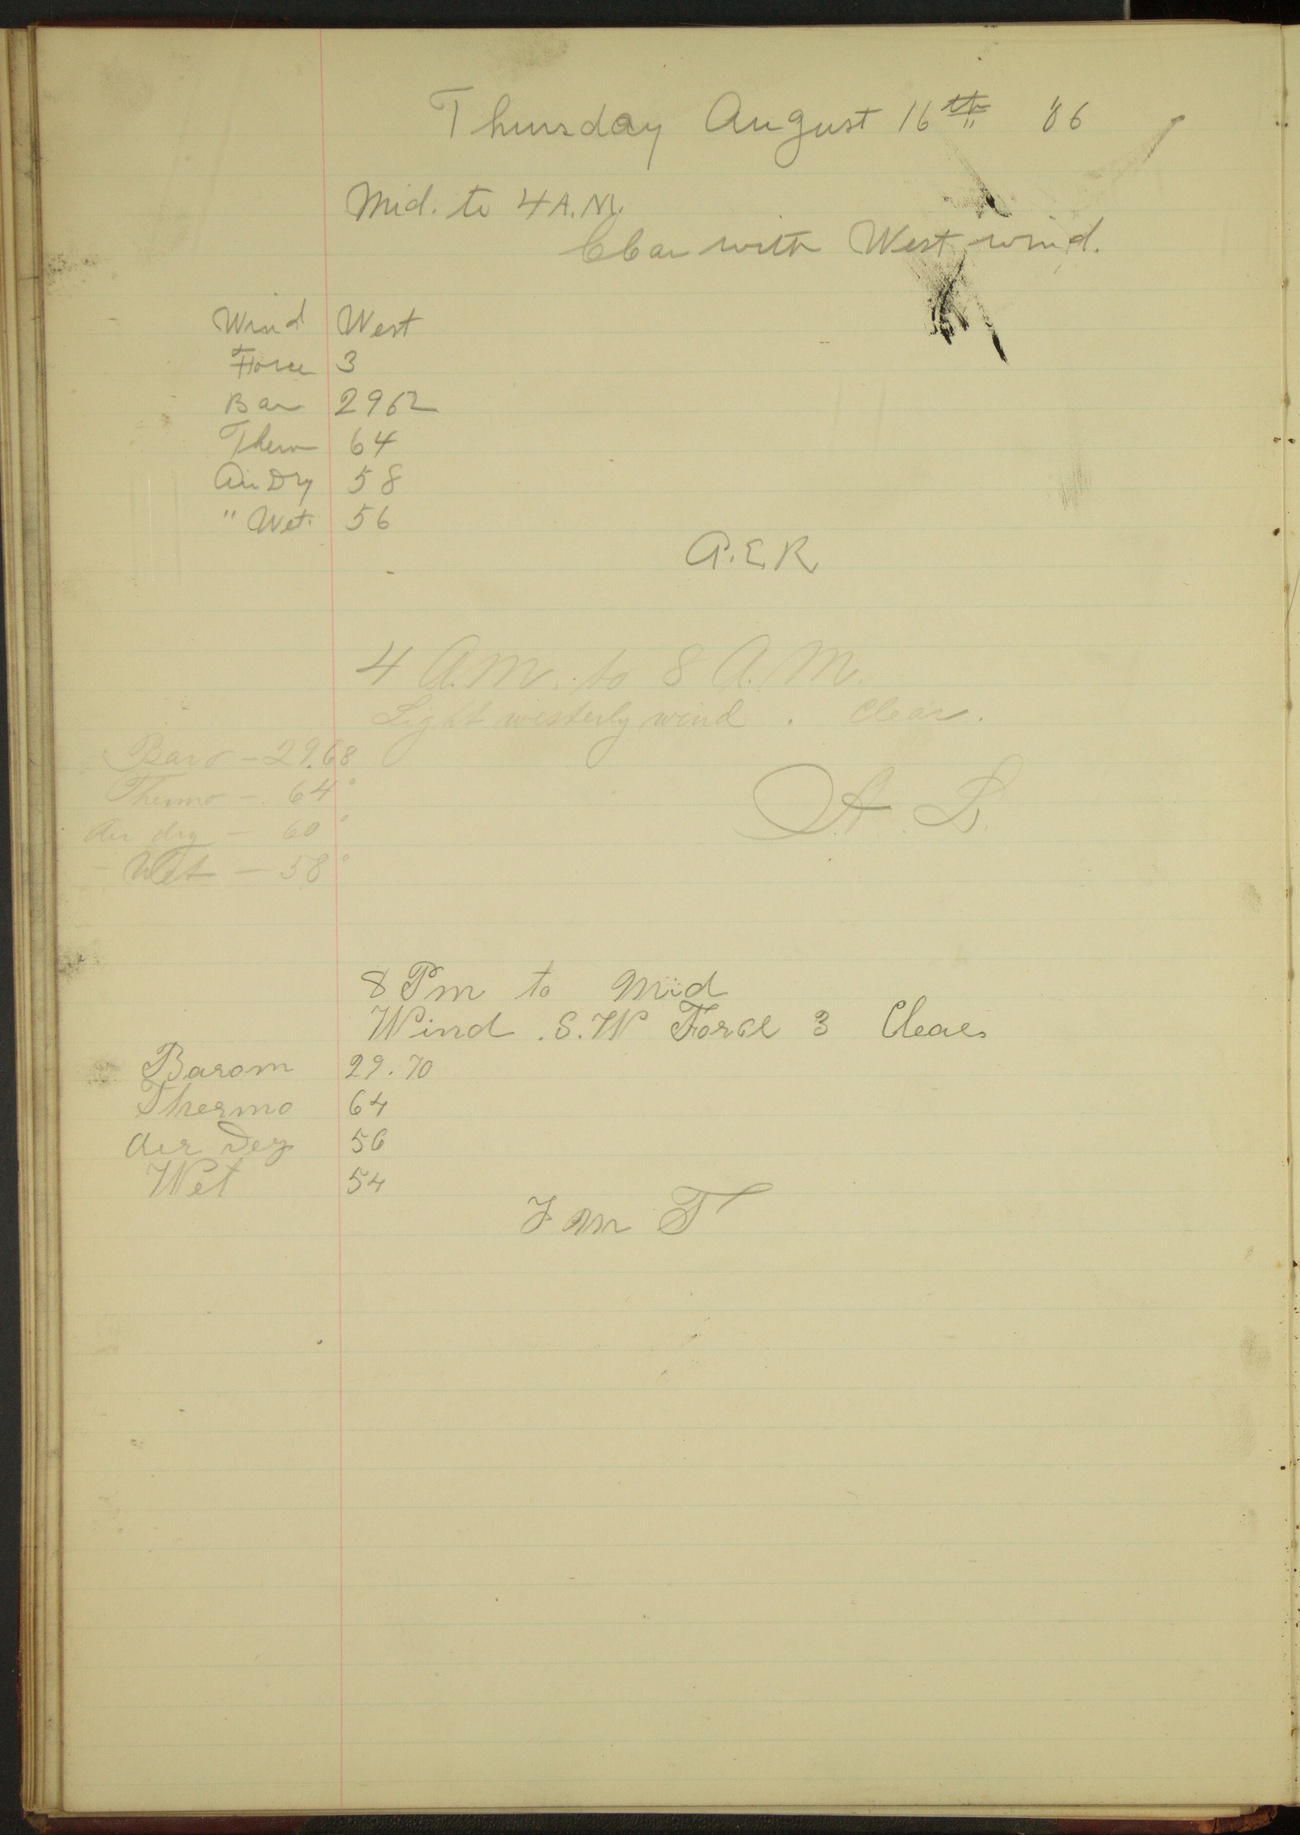 Thursday August 16th '06
Mid. to 4 A.M.
Clear with West wind.
Wind West
Force 3
Bar 2962
Therm 64
Air Dry 58
" Wet. 56
A.E.R.
4 A.M. to 8 A.M.
Light westerly wind. Clear.
Baro - 29.68
Thermo - 64°
Air dry - 60°
- Wet - 58°
A. L.
8 Pm to Mid
Wind . S.W Force 3 Clear
Barom 29.70
Thermo 64
Air Dry 56
Wet 54
J m T